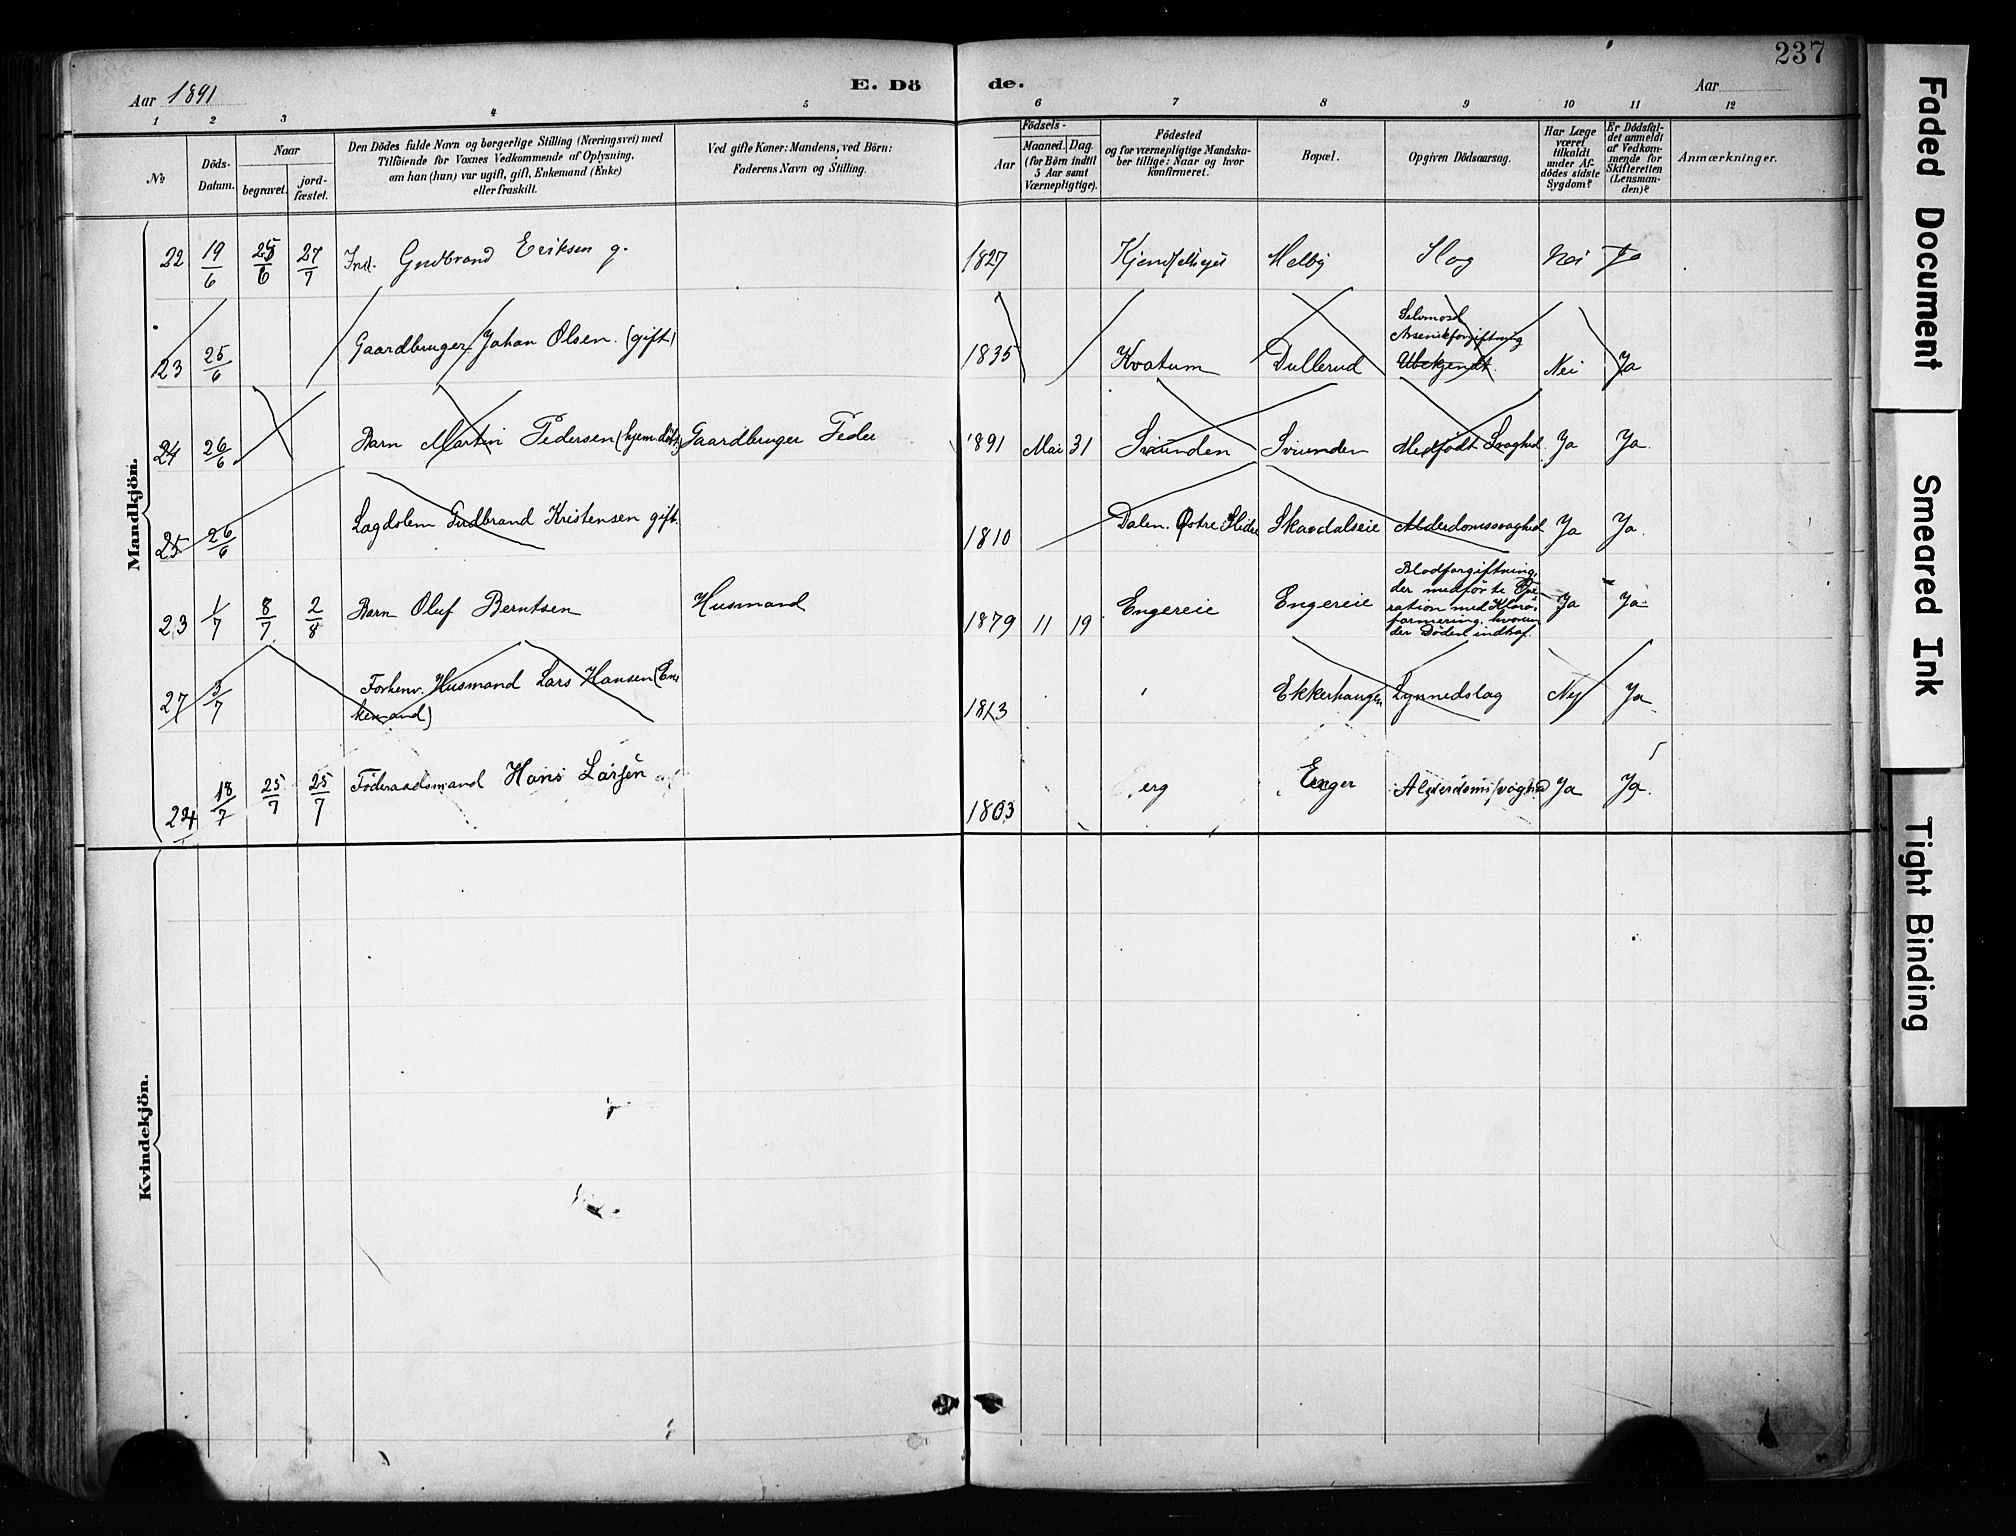 237
Aar 1891 E. Dö de. Aar
1 2 3 4 5 6 7 8 9 10 11 12
No
Döds-Datum.
Naar
begravet.
jord-fæstet.
Den Dödes fulde Navn og borgerlige Stilling (Næringsvei) med
Tilföiende for Voxnes Vedkommende af Oplysning,
om han (hun) var ugift, gift, Enkemand (Enke)
eller fraskilt.
Ved gifte Koner: Mandens, ved Börn:
Faderens Navn og Stilling.
Födsels-
Aar
Maaned. Dag.
(for Börn indtil
5 Aar samt
Værnepligtige).
Födested
og for værnepligtige Mandska-
ber tillige: Naar og hvor
konfirmeret.
Bopæl.
Opgiven Dödsaarsag.
Har Læge
været
tilkaldt
under Af-
dödes sidste
Sygdom?
Er Dödsfal-
det anmeldt
af Vedkom-
mende for
Skifteretten
(Lensman-
den)?
Anmærkninger.
Mandkjön.
22 19/6 25/6 27/7 Ind. Gudbrand Eriksen g. 1827 Melby Slag Nei Ja
23 25/6 Gaardbruger Johan Olsen. (gift) 1835 Kvatum Dullerud Selvmord
Arsenikforgiftning
Ubekjendt. Nei Ja
24 26/6 Barn Martin Pedersen (hjem.döbt) Gaardbruger Peder 1891 Mai 31 Sviunden Sviunden Medfødt Svaghed. Ja Ja.
25 26/6 Lagdølem Gudbrand Kristensen gift. 1810 Dalen. Østre Slidre Skavdalseie Alderdomssvaghed Ja Ja.
23 1/7 8/7 2/8 Barn Oluf Berntsen Husmand 1879 11 19 Engereie Engereie Blodforgiftning,
der medførte Ope-
ration med Kloro-
formering, hvorun-
der Døden indtraf. Ja Ja.
27 3/7 Forhenv. Husmand Lars Hansen (En-
kemand) 1813 Ekkerhaugen Lynnedslag Nej Ja
24 18/7 25/7 25/7 Föderaadsmand Hans Larsen 1803 erg Enger Alderdomssvaghed Ja Ja.
Kvindekjön.
Faded Document
Smeared Ink
Tight Binding